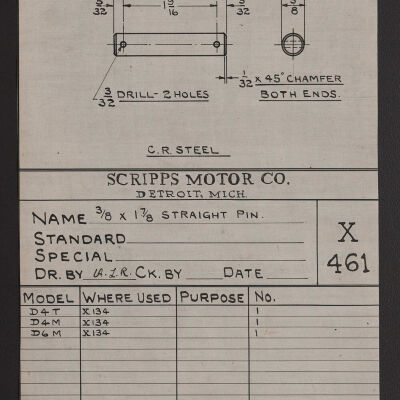 32
1 5/16
32
3/8
3/32 DRILL-2 HOLES
1/32 X 45° CHAMFER
BOTH ENDS.
C.R. STEEL
SCRIPPS MOTOR CO.
DETROIT, MICH.
NAME 3/8 X 1 7/8 STRAIGHT PIN.
STANDARD
SPECIAL
DR. BY CK. BY DATE
X
461
MODEL WHERE USED PURPOSE NO.
D4T X134 1
D4M X134 1
D6M X134 1